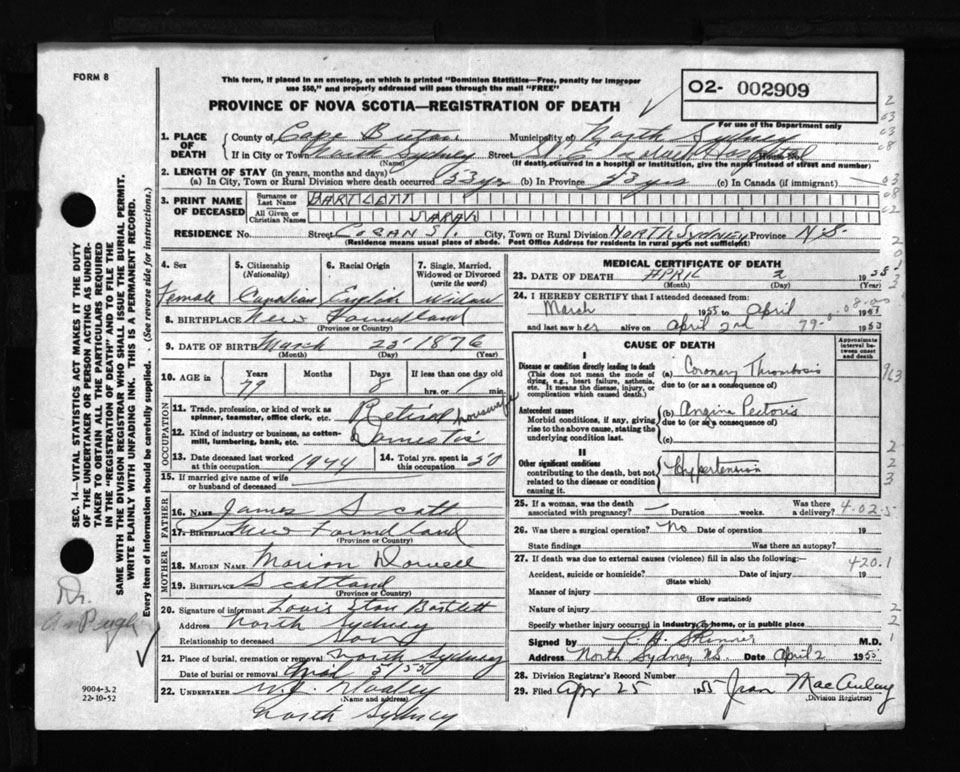 FORM 8
This form, if placed in an envelope, on which is printed "Dominion Statistics—Free, penalty for improper
use $50," and properly addressed will pass through the mail "FREE"
PROVINCE OF NOVA SCOTIA—REGISTRATION OF DEATH
O2- 002909
For use of the Department only
1. PLACE OF DEATH
County of Cape Breton Municipality of North Sydney
If in City or Town North Sydney Street Hospital
(Name) (If death occurred in a hospital or institution, give the name instead of street and number)
2. LENGTH OF STAY (in years, months and days)
(a) In City, Town or Rural Division where death occurred 53 yrs (b) In Province 53 yrs (c) In Canada (if immigrant) —
3. PRINT NAME OF DECEASED
Surname or Last Name BARTLETT
All Given or Christian Names SARAH
RESIDENCE No. Street City, Town or Rural Division NORTH SYDNEY Province N.S.
(Residence means usual place of abode. Post Office Address for residents in rural parts not sufficient)
4. Sex
Female
5. Citizenship (Nationality)
Canadian
6. Racial Origin
English
7. Single, Married, Widowed or Divorced (write the word)
Widow
8. BIRTHPLACE New Foundland
(Province or Country)
9. DATE OF BIRTH March 25 1876
(Month) (Day) (Year)
10. AGE in Years Months Days If less than one day old
79 8 hrs. or min.
OCCUPATION
11. Trade, profession, or kind of work as
spinner, teamster, office clerk, etc. Retired housewife
12. Kind of industry or business, as cotten-
mill, lumbering, bank, etc. Domestic
13. Date deceased last worked
at this occupation 1944
14. Total yrs. spent in
this occupation 50
15. If married give name of wife
or husband of deceased
FATHER
16. Name James Scott
17. Birthplace New Foundland
(Province or Country)
MOTHER
18. MAIDEN NAME Marion
19. BIRTHPLACE Scotland
(Province or Country)
20. Signature of informant Bartlett
Address North Sydney
Relationship to deceased Son
21. Place of burial, cremation or removal North Sydney
Date of burial or removal
22. UNDERTAKER
(Name and address)
North Sydney
MEDICAL CERTIFICATE OF DEATH
23. DATE OF DEATH APRIL 2 1955
(Month) (Day)
24. I HEREBY CERTIFY that I attended deceased from:
March 1955 to April 1955
and last saw her alive on April 2nd 1955
79-
08-00
CAUSE OF DEATH
Approximate interval between onset and death
I
Disease or condition directly leading to death
(This does not mean the mode of
dying, e.g., heart failure, asthenia,
etc. It means the disease, injury, or
complication which caused death.)
(a) Coronary Thrombosis
due to (or as a consequence of)
Antecedent causes
Morbid conditions, if any, giving
rise to the above cause, stating the
underlying condition last.
(b) Angina Pectoris
due to (or as a consequence of)
(c)
II
Other significant conditions
contributing to the death, but not
related to the disease or condition
causing it.
Hypertension
25. If a woman, was the death Was there
associated with pregnancy? — Duration weeks. a delivery?
4-02-5
26. Was there a surgical operation? No Date of operation 19
State findings Was there an autopsy?
27. If death was due to external causes (violence) fill in also the following:—
420.1
Accident, suicide or homicide? Date of injury 19
(State which)
Manner of injury
(How sustained)
Nature of injury
Specify whether injury occurred in industry, home, or in public place
Signed by Skinner M.D.
Address North Sydney N.S. Date April 2 1955
28. Division Registrar's Record Number
29. Filed Apr 25 1955 Jean MacAulay
(Division Registrar)
SEC. 14—VITAL STATISTICS ACT MAKES IT THE DUTY
OF THE UNDERTAKER OR PERSON ACTING AS UNDER-
TAKER TO OBTAIN ALL THE PARTICULARS REQUIRED
IN THE "REGISTRATION OF DEATH" AND TO FILE THE
SAME WITH THE DIVISION REGISTRAR WHO SHALL ISSUE THE BURIAL PERMIT.
WRITE PLAINLY WITH UNFADING INK. THIS IS A PERMANENT RECORD.
Every item of information should be carefully supplied. (See reverse side for instructions.)
Dr.
Pugh
9004-3.2
22-10-52